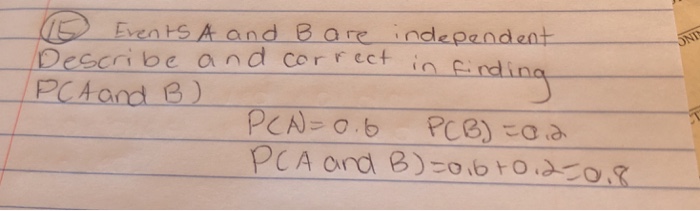 15 Events A and B are independent
Describe and correct in finding
P(A and B)
P(A)=0.6 P(B)=0.2
P(A and B)=0.6+0.2=0.8